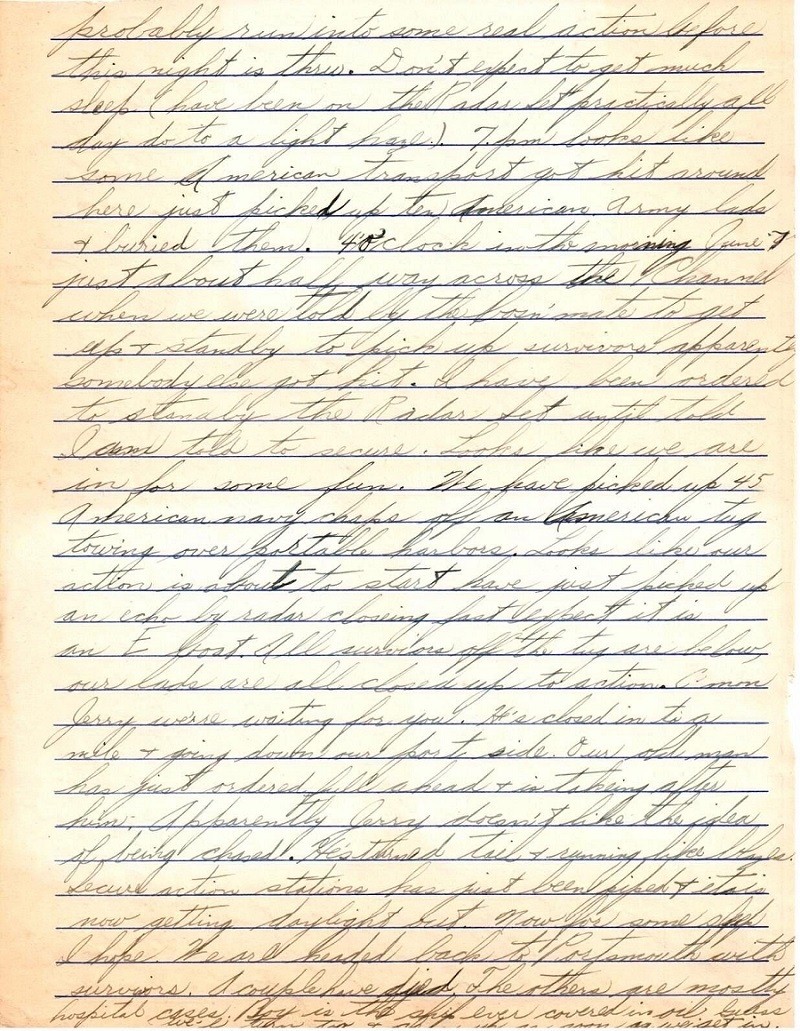 probably run into some real action before
this night is thru. Don't expect to get much
sleep (have been on the Radar Set practically all
day do to a light haze.). 7. pm looks like
some American transport got hit around
here just picked up ten American Army lads
& buried them. 4 O'clock in the morning June 7
just about half way across the Channel
when we were told by the bosn' mate to get
up & standby to pick up survivors apparently
somebody else got hit. I have been ordered
to standby the Radar Set until told
I am told to secure. Looks like we are
in for some fun. We have picked up 45
American navy chaps off an American tug
towing over portable harbors. Looks like our
action is about to start have just picked up
an echo by radar closeing fast expect it is
an E boat. All survivors off the tug are below,
our lads are all closed up to action. C'mon
Jerry we're waiting for you. He's closed in to a
mile & going down our port side. Our old man
has just ordered full ahead & is takeing after
him. Apparently Jerry doesn't like the idea
of being chased. He's turned tail & running like blazes.
Secure action stations has just been piped & it is
now getting daylight out. Now for some sleep
I hope. We are headed back to Portsmouth with
survivors. A couple have died The others are mostly
hospital cases. Boy is the ship ever covered in oil, Guess
we'll turn to & as soon as we get in.